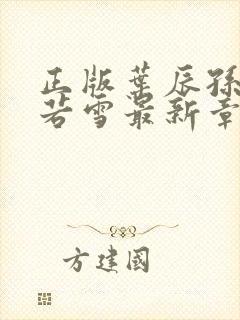 正版叶辰孙
若雪最新章
方建国